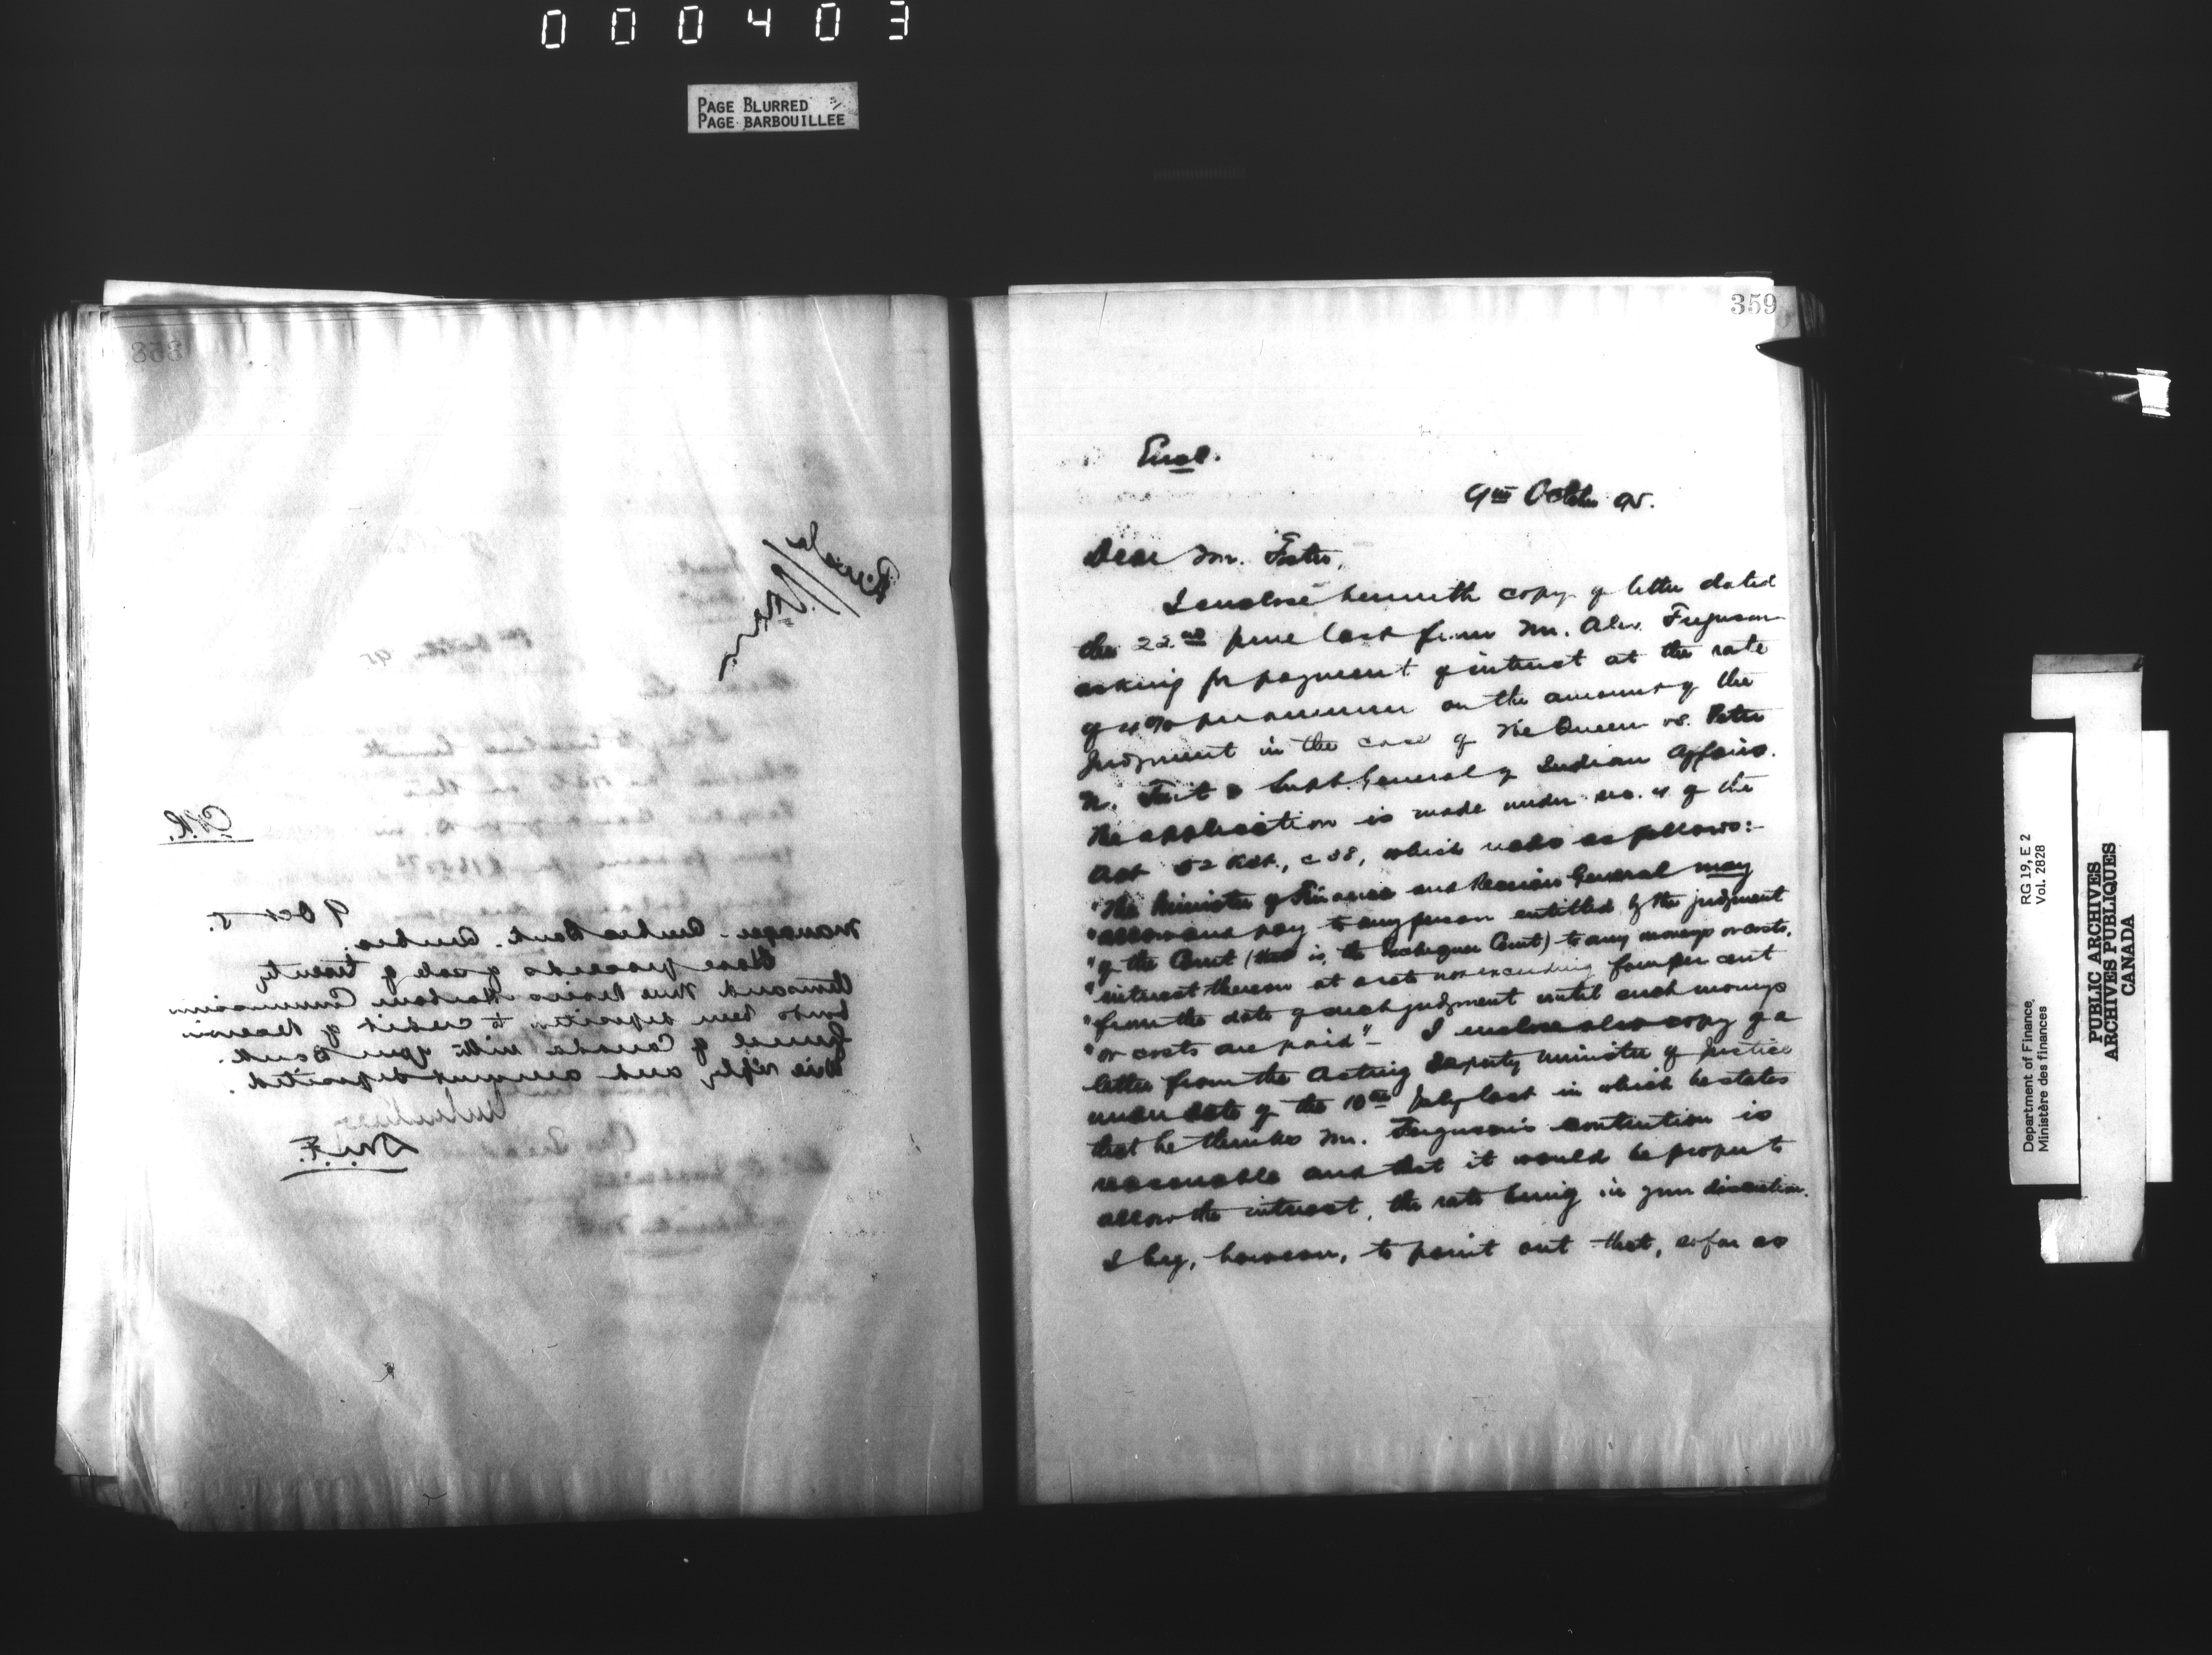 000403
PAGE BLURRED
PAGE BARBOUILLEE
358
C.P.R.
9 Oct 5.
Manager Quebec Bank. Quebec.
Have proceeds of sale of twenty
thousand Three Rivers Harbour Commission
bonds been deposited to credit of Receiver
General of Canada with your Bank.
Wire reply and amount deposited.
D.M.F.
359
Encl.
9th October 95.
Dear Mr. Foster,
I enclose herewith copy of letter dated
the 22nd June last from Mr. Alex. Ferguson
asking for payment of interest at the rate
of 4% per annum on the amount of the
judgment in the case of The Queen vs. Peter
& Supt. General of Indian Affairs.
The application is made under sec. 4 of the
Act 52 Vict., c 38, which reads as follows:-
"The Minister of Finance and Receiver General may
"allow and pay to any person entitled by the judgment
"of the Court (that is, the Exchequer Court) to any moneys or costs,
"interest thereon at a rate not exceeding four per cent
"from the date of such judgment until such moneys
"or costs are paid"- I enclose also copy of a
letter from the Acting Deputy Minister of Justice
under date of the 10th July last in which he states
that he thinks Mr. Ferguson's contention is
reasonable and that it would be proper to
allow the interest, the rate being in your discretion.
I beg, however, to point out that, so far as
Department of Finance
Ministère des finances
RG 19, E 2
Vol. 2828
PUBLIC ARCHIVES
ARCHIVES PUBLIQUES
CANADA